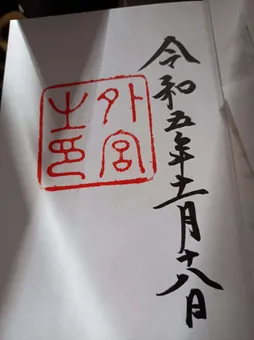 令和五年十一月十八日
外宮
之印